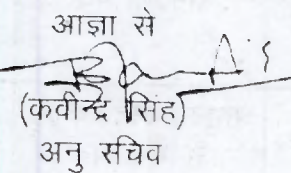 आज्ञा से
(कवीन्द्र सिंह)
अनु सचिव